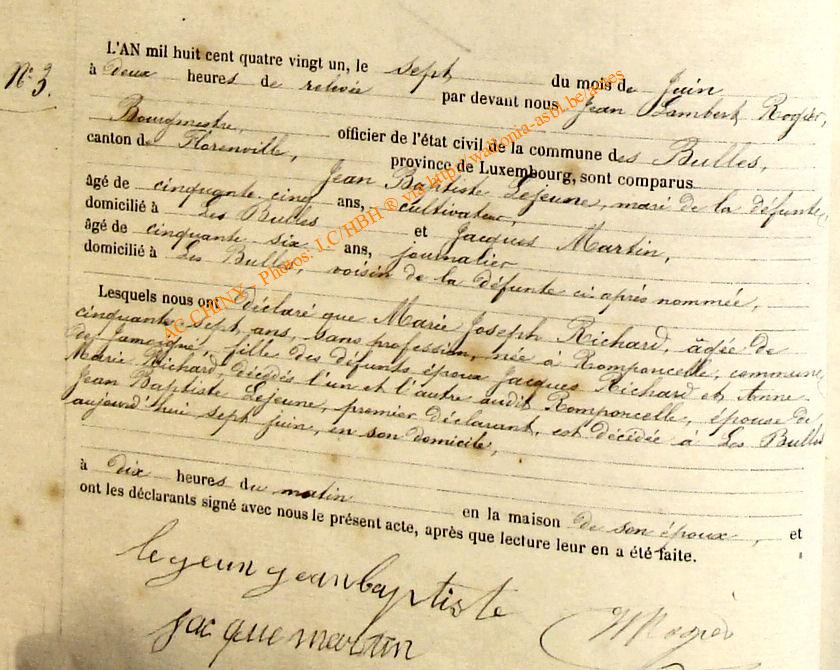 N° 3.
L'AN mil huit cent quatre vingt un, le sept du mois de Juin
à deux heures de relevée par devant nous Jean Lambert Rogier,
Bourgmestre, officier de l'état civil de la commune des Bulles,
canton de Florenville, province de Luxembourg, sont comparus
Jean Baptiste Lejeune, mari de la défunte,
âgé de cinquante cinq ans, cultivateur,
domicilié à Les Bulles et Jacques Martin,
âgé de cinquante six ans, journalier
domicilié à Les Bulles, voisin de la défunte ci-après nommée,
Lesquels nous ont déclaré que Marie Joseph Richard, âgée de
cinquante sept ans, sans profession, née à Romponcelle, commune
de Jamoigne, fille des défunts époux Jacques Richard et Anne
Marie Richard, décédés l'un et l'autre audit Romponcelle, épouse de
Jean Baptiste Lejeune, premier déclarant, est décédée à Les Bulles
aujourd'hui sept juin, en son domicile,
à dix heures du matin en la maison de son époux, et
ont les déclarants signé avec nous le présent acte, après que lecture leur en a été faite.
lejeun jean baptiste
jacque martin
Rogier
AC CHINY - Photos: J.C/HBH ® via http://wallonia-asbl.be/actes